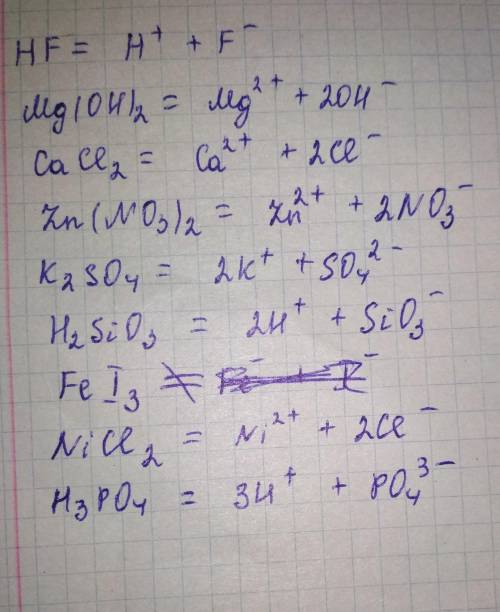 HF = H⁺ + F⁻
Mg(OH)₂ = Mg²⁺ + 2OH⁻
CaCl₂ = Ca²⁺ + 2Cl⁻
Zn(NO₃)₂ = Zn²⁺ + 2NO₃⁻
K₂SO₄ = 2K⁺ + SO₄²⁻
H₂SiO₃ = 2H⁺ + SiO₃⁻
FeI₃
NiCl₂ = Ni²⁺ + 2Cl⁻
H₃PO₄ = 3H⁺ + PO₄³⁻